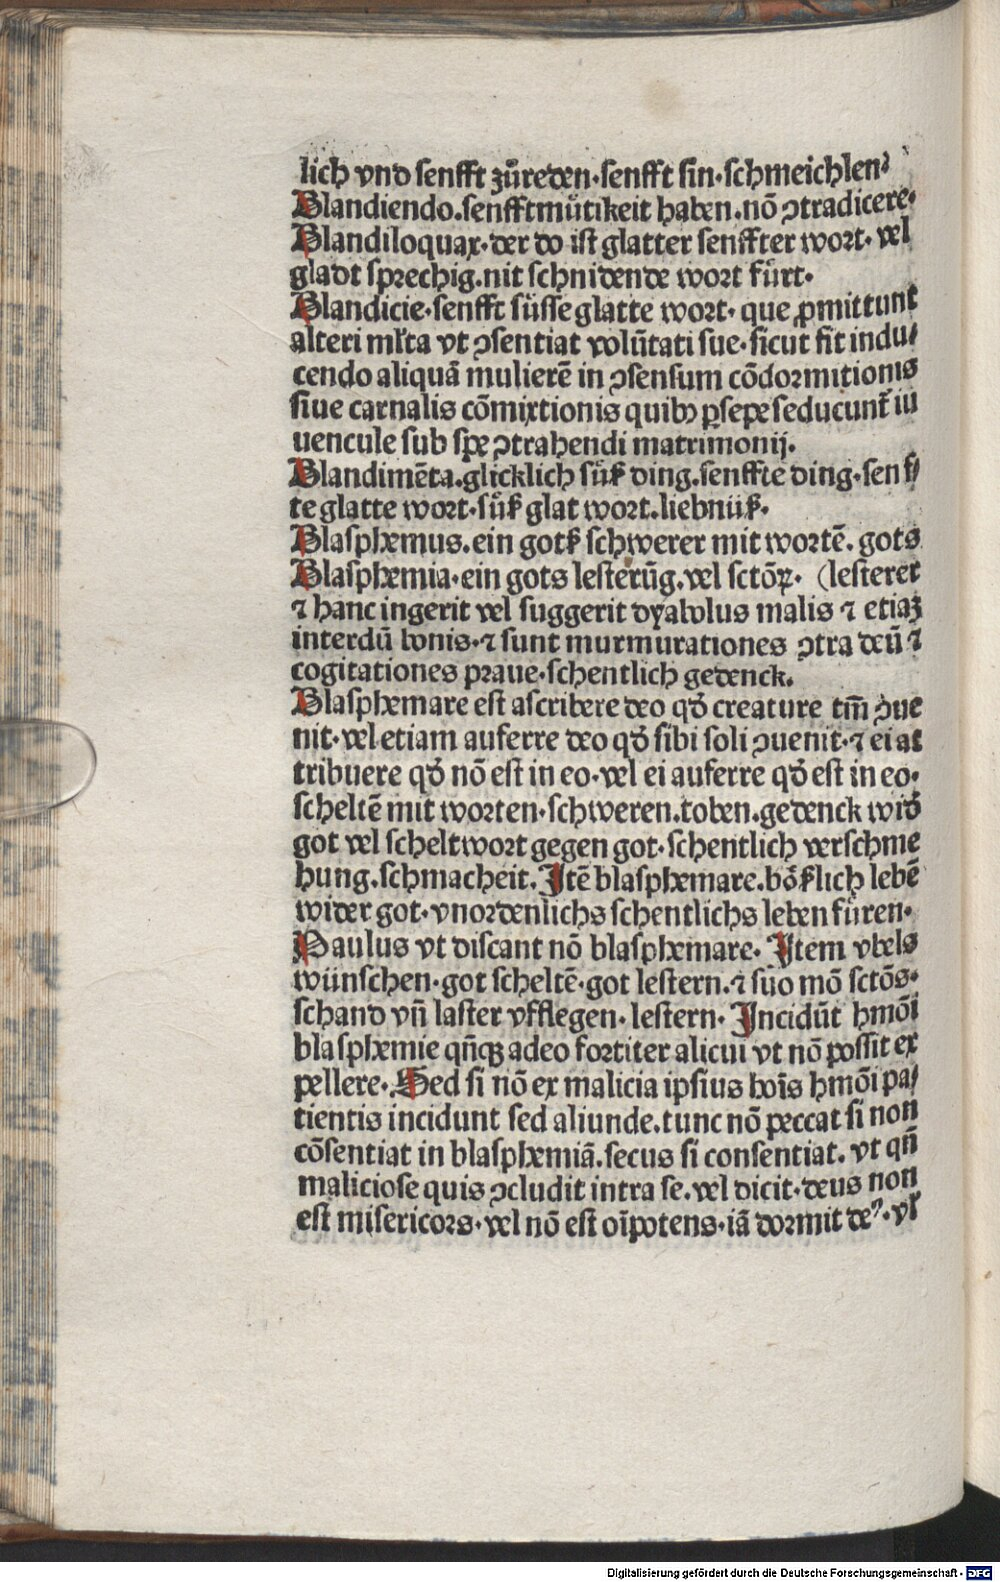 lich vnd senfft zůreden·senfft sin·schmeichlen
Blandiendo.senfftmůtikeit haben.nō ꝯtradicere·
Blandiloquax·der do ist glatter senffter wort· vel
gladt sprechig.nit schnidende wort fůrt·
Blandicie·senfft sůsse glatte wort· que ꝓmittunt
alteri ml̃ta vt ꝯsentiat volūtati sue·sicut fit indu⸗
cendo aliquā mulierē in ꝯsensum cōdormitionis
siue carnalis cōmixtionis quibꝰ ꝑsepe seducunt̃ iu
uencule sub spe ꝯtrahendi matrimonij·
Blandimēta.glicklich sůß ding.senffte ding·senf⸗
te glatte wort·sůß glat wort.liebnüß·
Blasphemus.ein gotß schwerer mit wortē.gots
Blasphemia·ein gots lesterūg.vel sctōꝝ· (lesterer
⁊ hanc ingerit vel suggerit dyabolus malis ⁊ etiaꝫ
interdū bonis·⁊ sunt murmurationes ꝯtra deū ⁊
cogitationes praue·schentlich gedenck.
Blasphemare est ascribere deo qđ creature tm̄ ꝯue
nit·vel etiam auferre deo qđ sibi soli ꝯuenit·⁊ ei at
tribuere qđ nō est in eo·vel ei auferre qđ est in eo·
scheltē mit worten·schweren.toben.gedenck wid̛
got vel scheltwort gegen got·schentlich verschme
hung.schmacheit.Itē blasphemare.bößlich lebē
wider got·vnordenlichs schentlichs leben fůren·
Paulus vt discant nō blasphemare· Item vbels
wünschen·got scheltē·got lestern.⁊ suo mō sctōs·
schand vn̄ laster vfflegen·lestern· Incidūt hmōi
blasphemie qn̄qꝫ adeo fortiter alicui vt nō possit ex
pellere·Sed si nō ex malicia ipsius hoīs hmōi pa⸗
tientis incidunt sed aliunde.tunc nō peccat si non
cōsentiat in blasphemiā.secus si consentiat. vt qn̄
maliciose quis ꝯcludit intra se.vel dicit·deus non
est misericors·vel nō est oīpotens·iā dormit deꝰ·vl̛
Digitalisierung gefördert durch die Deutsche Forschungsgemeinschaft - DFG